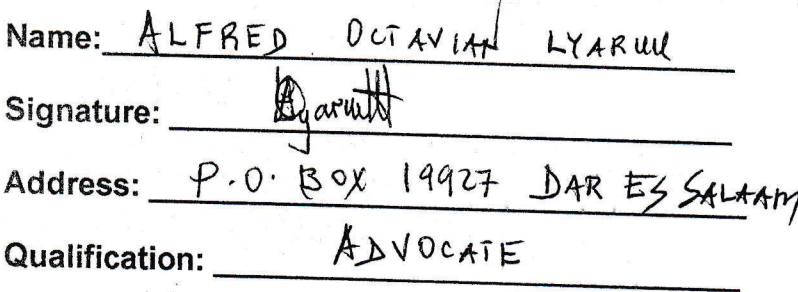 Name: ALFRED OCTAVIAN LYARUU
Signature:
Address: P.O. BOX 19927 DAR ES SALAAM
Qualification: ADVOCATE